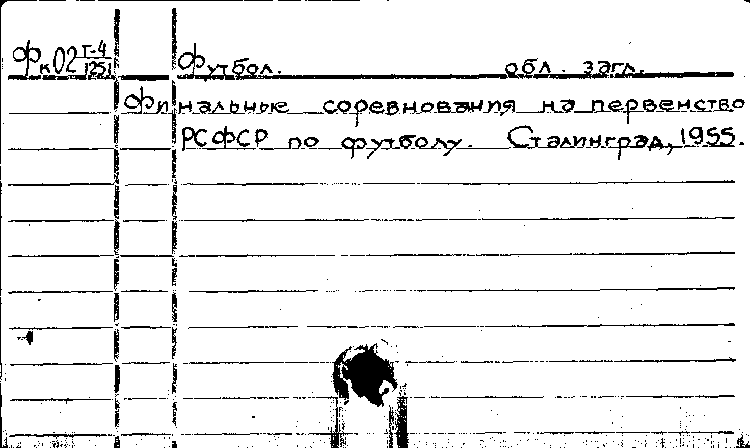 Фк02 Г-4/1251 Футбол. обл. загл.
Финальные соревнования на первенство
РСФСР по футболу. Сталинград, 1955.